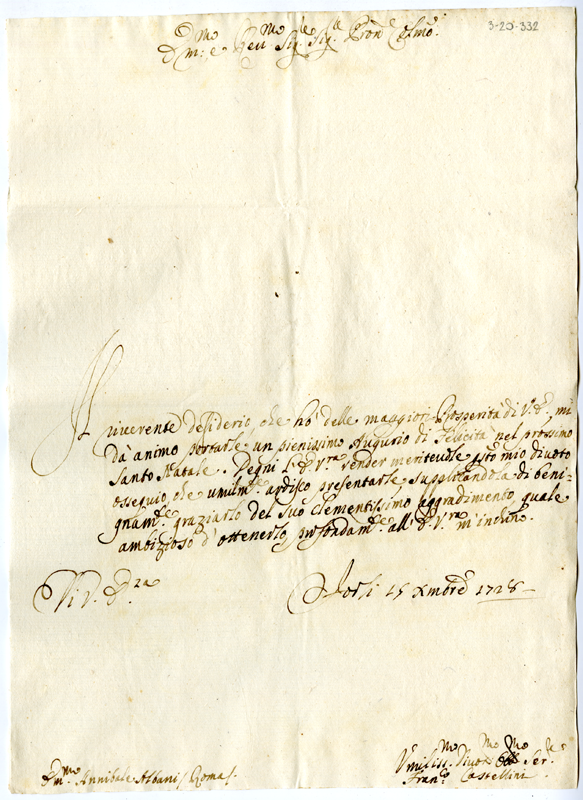 3-20-332
E.mo e Rev.mo Sig.re Sig.re Pron.e Col.mo
Il riverente desiderio, che hò delle maggiori Prosperità di V. E., mi
dà animo portarle un pienissimo Augurio di Felicità nel prossimo
Santo Natale. Degni l'E. V.ra render meritevole q̃sto mio divoto
ossequio, che umilm.e ardisco presentarle supplicandola di beni-
gnam.e graziarlo del suo clementissimo aggradimento, quale
ambizioso d'ottenerlo, profondam.e all'E. V.ra m'inchino.
Di V. E.za
Forlì 15 Xmbre 1728
Em.mo Annibale Albani / Roma /.
Umiliss.mo Divot.mo Obb.mo Ser.re
Fran.co Castellini